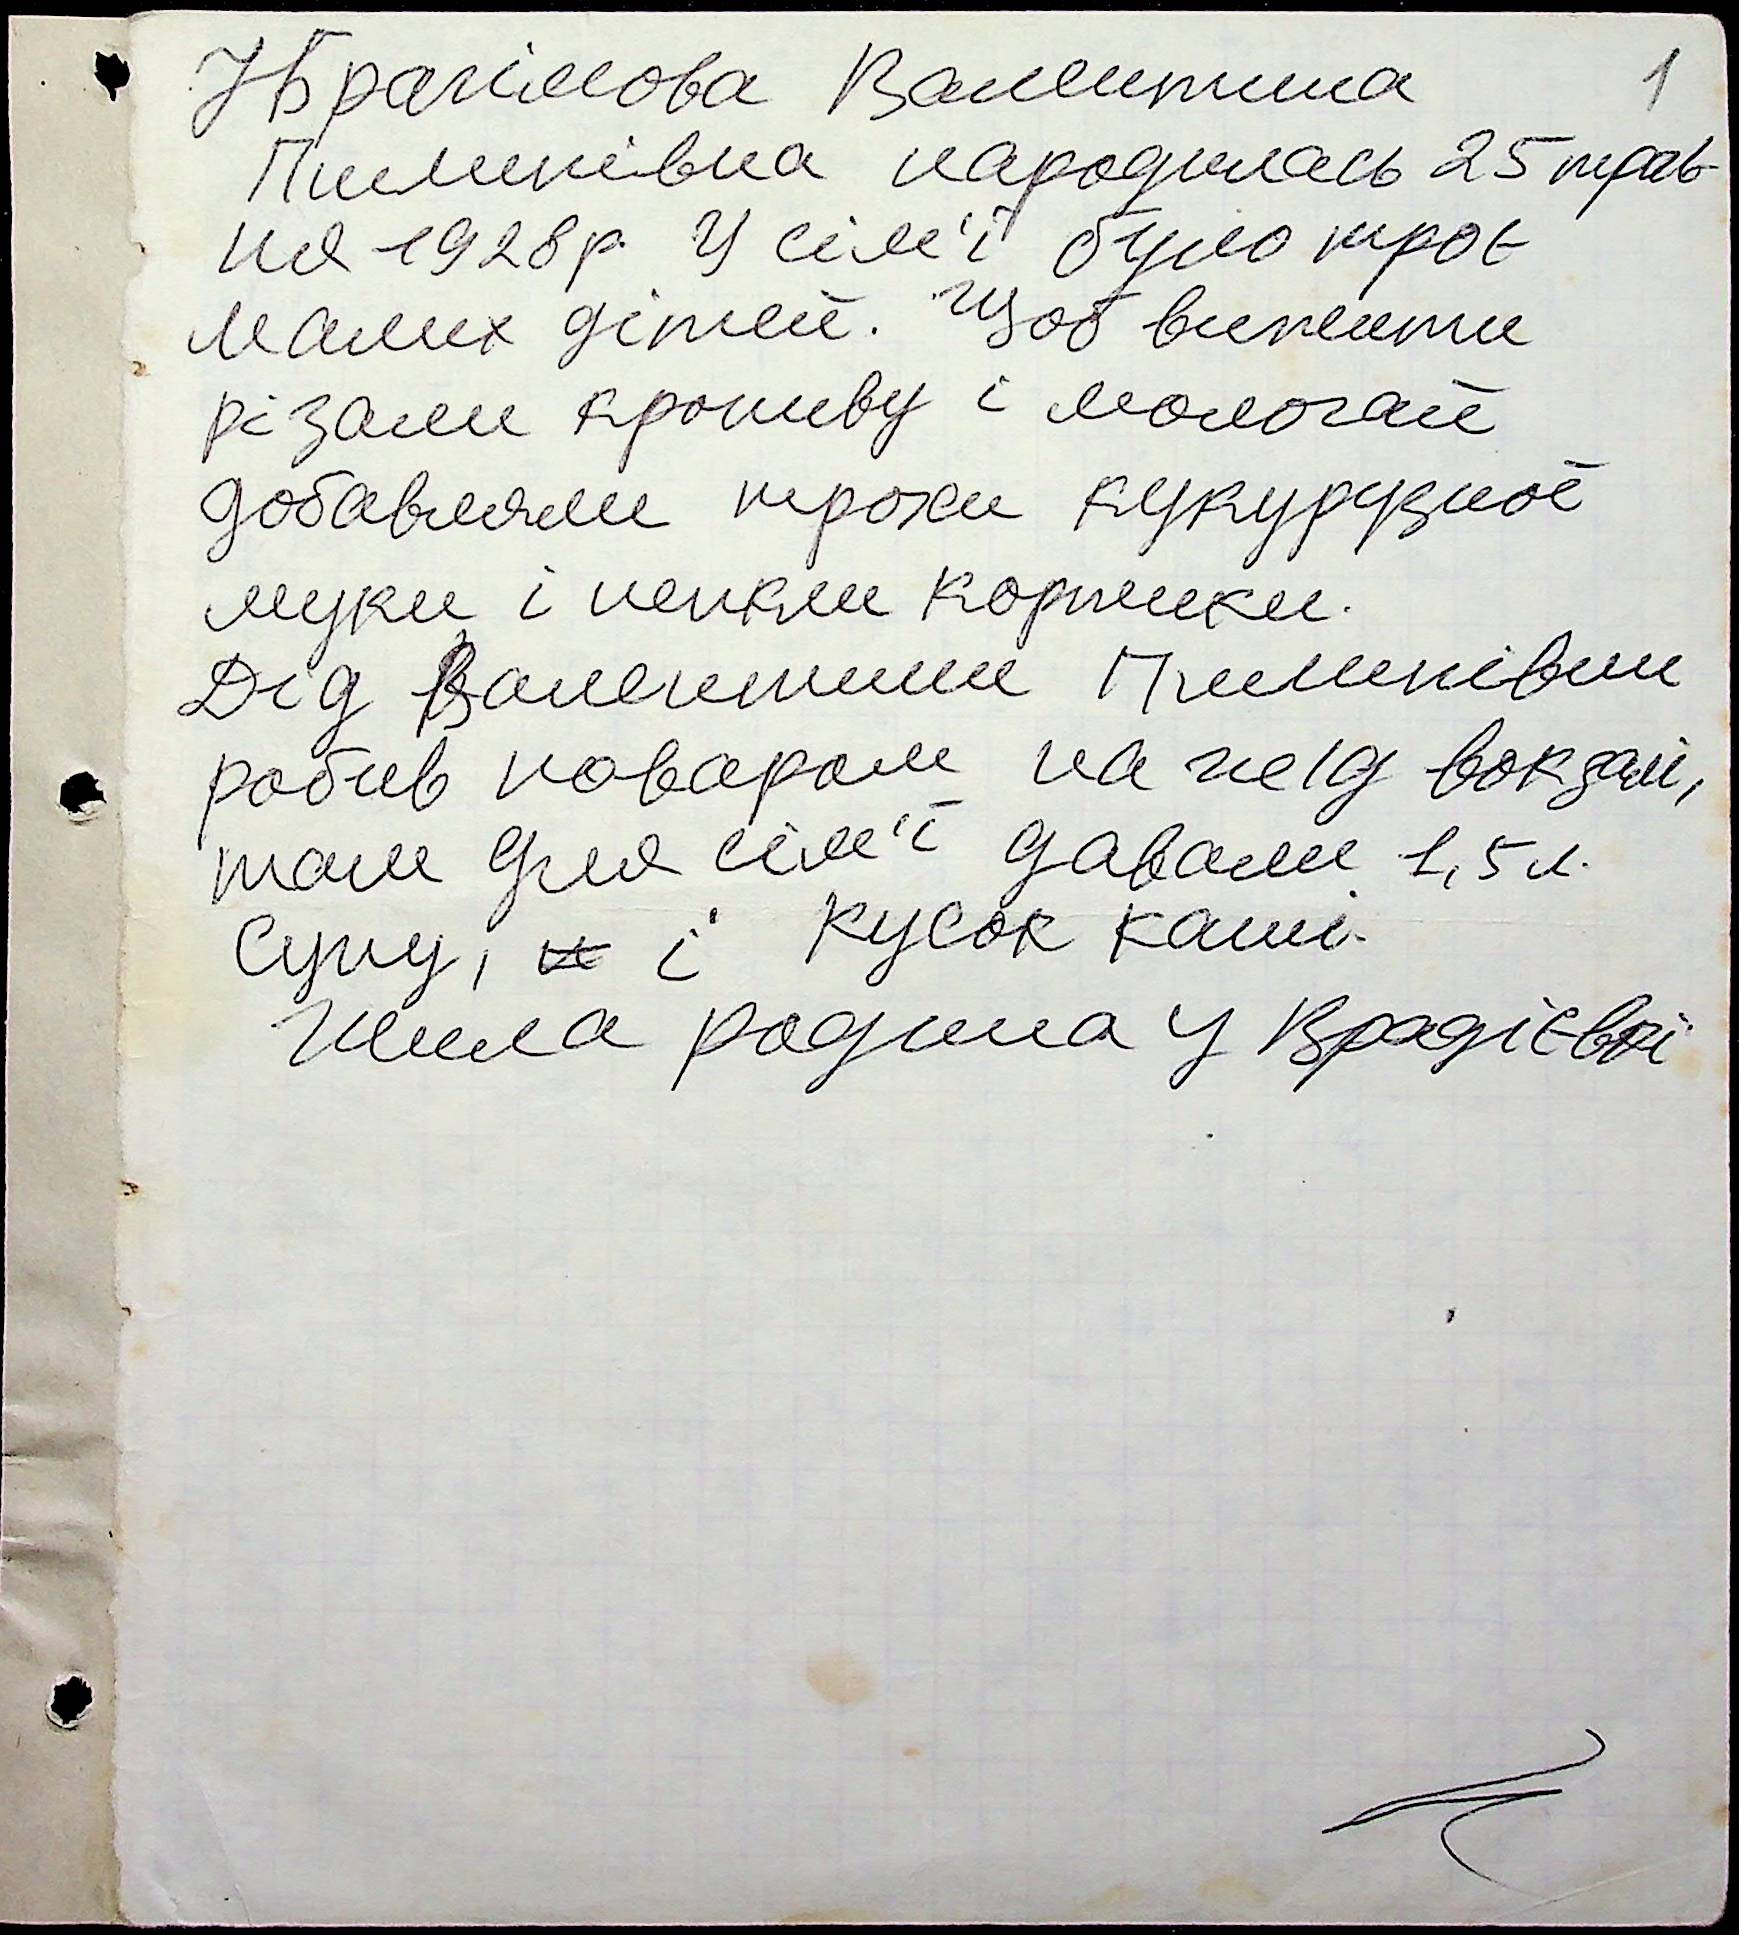 Ібрагімова Валентина 1
Пилипівна народилась 25 трав
ня 1928 р. У сім'ї було троє
малих дітей. Щоб вижити
різали кропиву і молочай
добавляли трохи кукурузної
муки і пекли коржики.
Дід Валентини Пилипівни
робив поваром на ж/д вокзалі,
там для сім'ї давали 1,5 л.
супу, і кусок каші.
Жила родина у Врадієвкі